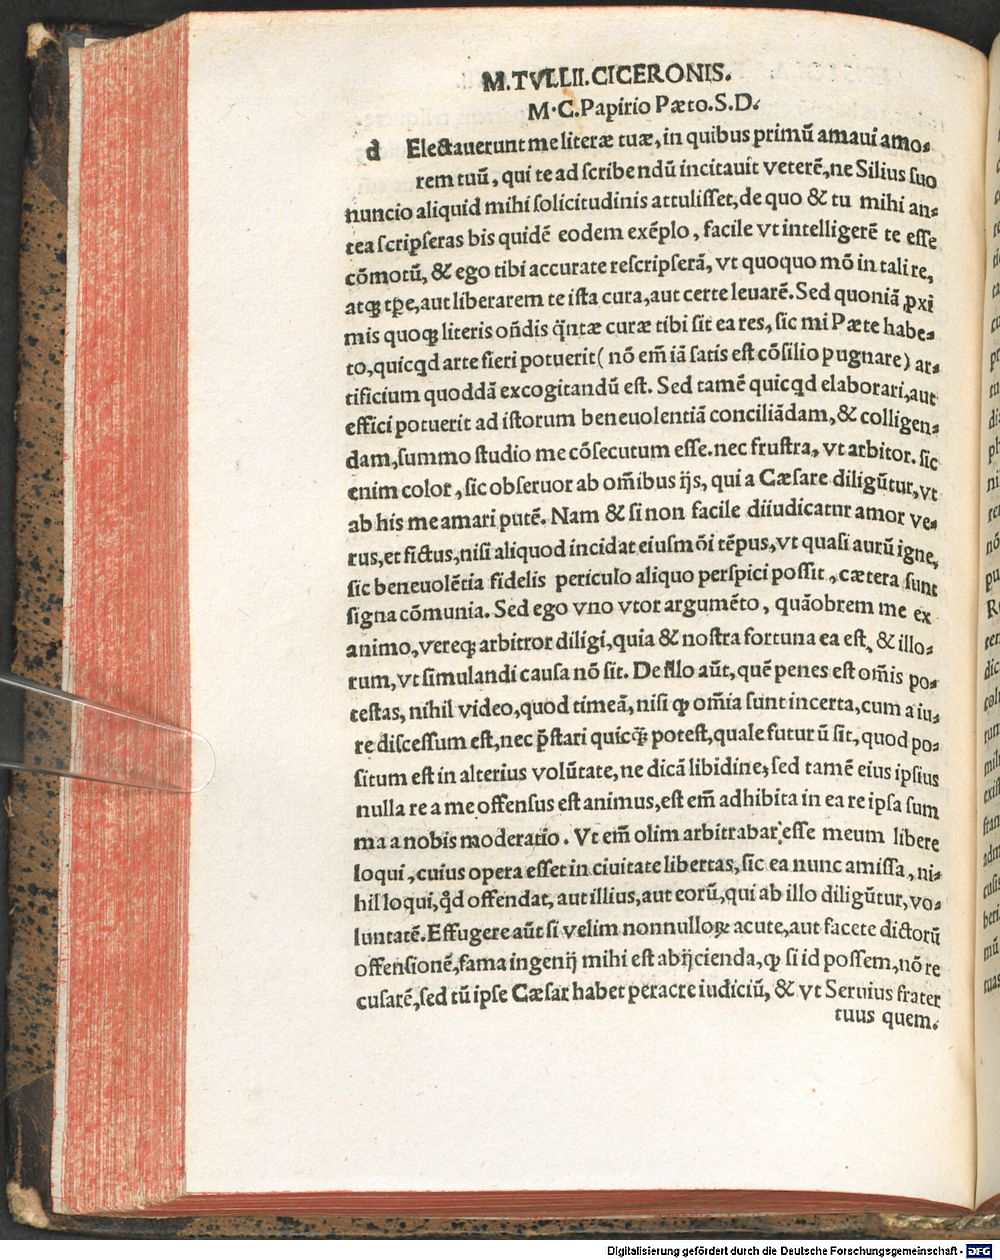 M. TVLLII. CICERONIS.
M. C. Papirio Pæto. S. D.
d Electauerunt me literæ tuæ, in quibus primũ amaui amo-
rem tuũ, qui te ad ſcribendũ incitauit veterẽ, ne Silius ſuo
nuncio aliquid mihi ſolicitudinis attuliſſet, de quo & tu mihi an-
tea ſcripſeras bis quidẽ eodem exẽplo, facile vt intelligerẽ te eſſe
cõmotũ, & ego tibi accurate reſcripſerã, vt quoquo mõ in tali re,
atqꝫ tꝑe, aut liberarem te iſta cura, aut certe leuarẽ. Sed quoniã ꝓxi
mis quoqꝫ literis oñdis q̃ntæ curæ tibi ſit ea res, ſic mi Pæte habe-
to, quicqd arte fieri potuerit (nõ em̃ iã ſatis eſt cõſilio pugnare) ar-
tificium quoddã excogitandũ eſt. Sed tamẽ quicqd elaborari, aut
effici potuerit ad iſtorum beneuolentiã conciliãdam, & colligen-
dam, ſummo ſtudio me cõſecutum eſſe. nec fruſtra, vt arbitor. ſic
enim color, ſic obſeruor ab om̃ibus ijs, qui a Cæſare diligũtur, vt
ab his me amari putẽ. Nam & ſi non facile diiudicatnr amor ve-
rus, et fictus, niſi aliquod incidat eiuſmõi tẽpus, vt quaſi aurũ igne,
ſic beneuolẽtia fidelis periculo aliquo perſpici poſſit, cætera ſunt
ſigna cõmunia. Sed ego vno vtor argumẽto, quãobrem me ex
animo, vereqꝫ arbitror diligi, quia & noſtra fortuna ea eſt, & illo-
rum, vt ſimulandi cauſa nõ ſit. De illo aũt, quẽ penes eſt om̃is po-
teſtas, nihil video, quod timeã, niſi ꝙ om̃ia ſunt incerta, cum a iu-
re diſceſſum eſt, nec p̃ſtari quicqꝫ̃ poteſt, quale futurũ ſit, quod po-
ſitum eſt in alterius volũtate, ne dicã libidineꝫ ſed tamẽ eius ipſius
nulla re a me offenſus eſt animus, eſt em̃ adhibita in ea re ipſa ſum
ma a nobis moderatio. Vt em̃ olim arbitrabar eſſe meum libere
loqui, cuius opera eſſet in ciuitate libertas, ſic ea nunc amiſſa, ni-
hil loqui, qd̃ offendat, aut illius, aut eorũ, qui ab illo diligũtur, vo-
luntatẽ. Effugere aũt ſi velim nonnulloꝝ acute, aut facete dictorũ
offenſionẽ, fama ingenij mihi eſt abijcienda, ꝙ ſi id poſſem, nõ re
cuſarẽ, ſed tũ ipſe Cæſar habet peracre iudiciũ, & vt Seruius frater
tuus quem.
Digitalisierung gefördert durch die Deutsche Forschungsgemeinschaft - DFG